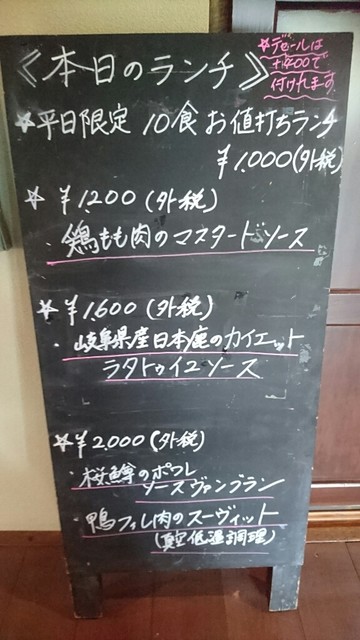 《本日のランチ》
★デセールは
+¥400で
付けれます
★平日限定 10食 お値打ちランチ
¥1,000(外税)
☆¥1,200(外税)
・鶏もも肉のマスタードソース
☆¥1,600(外税)
・岐阜県産日本鹿のカイエット
ラタトゥイユソース
☆¥2,000(外税)
・桜鱒のポワレ
ソースヴァンブラン
・鴨フィレ肉のスーヴィット
(真空低温調理)